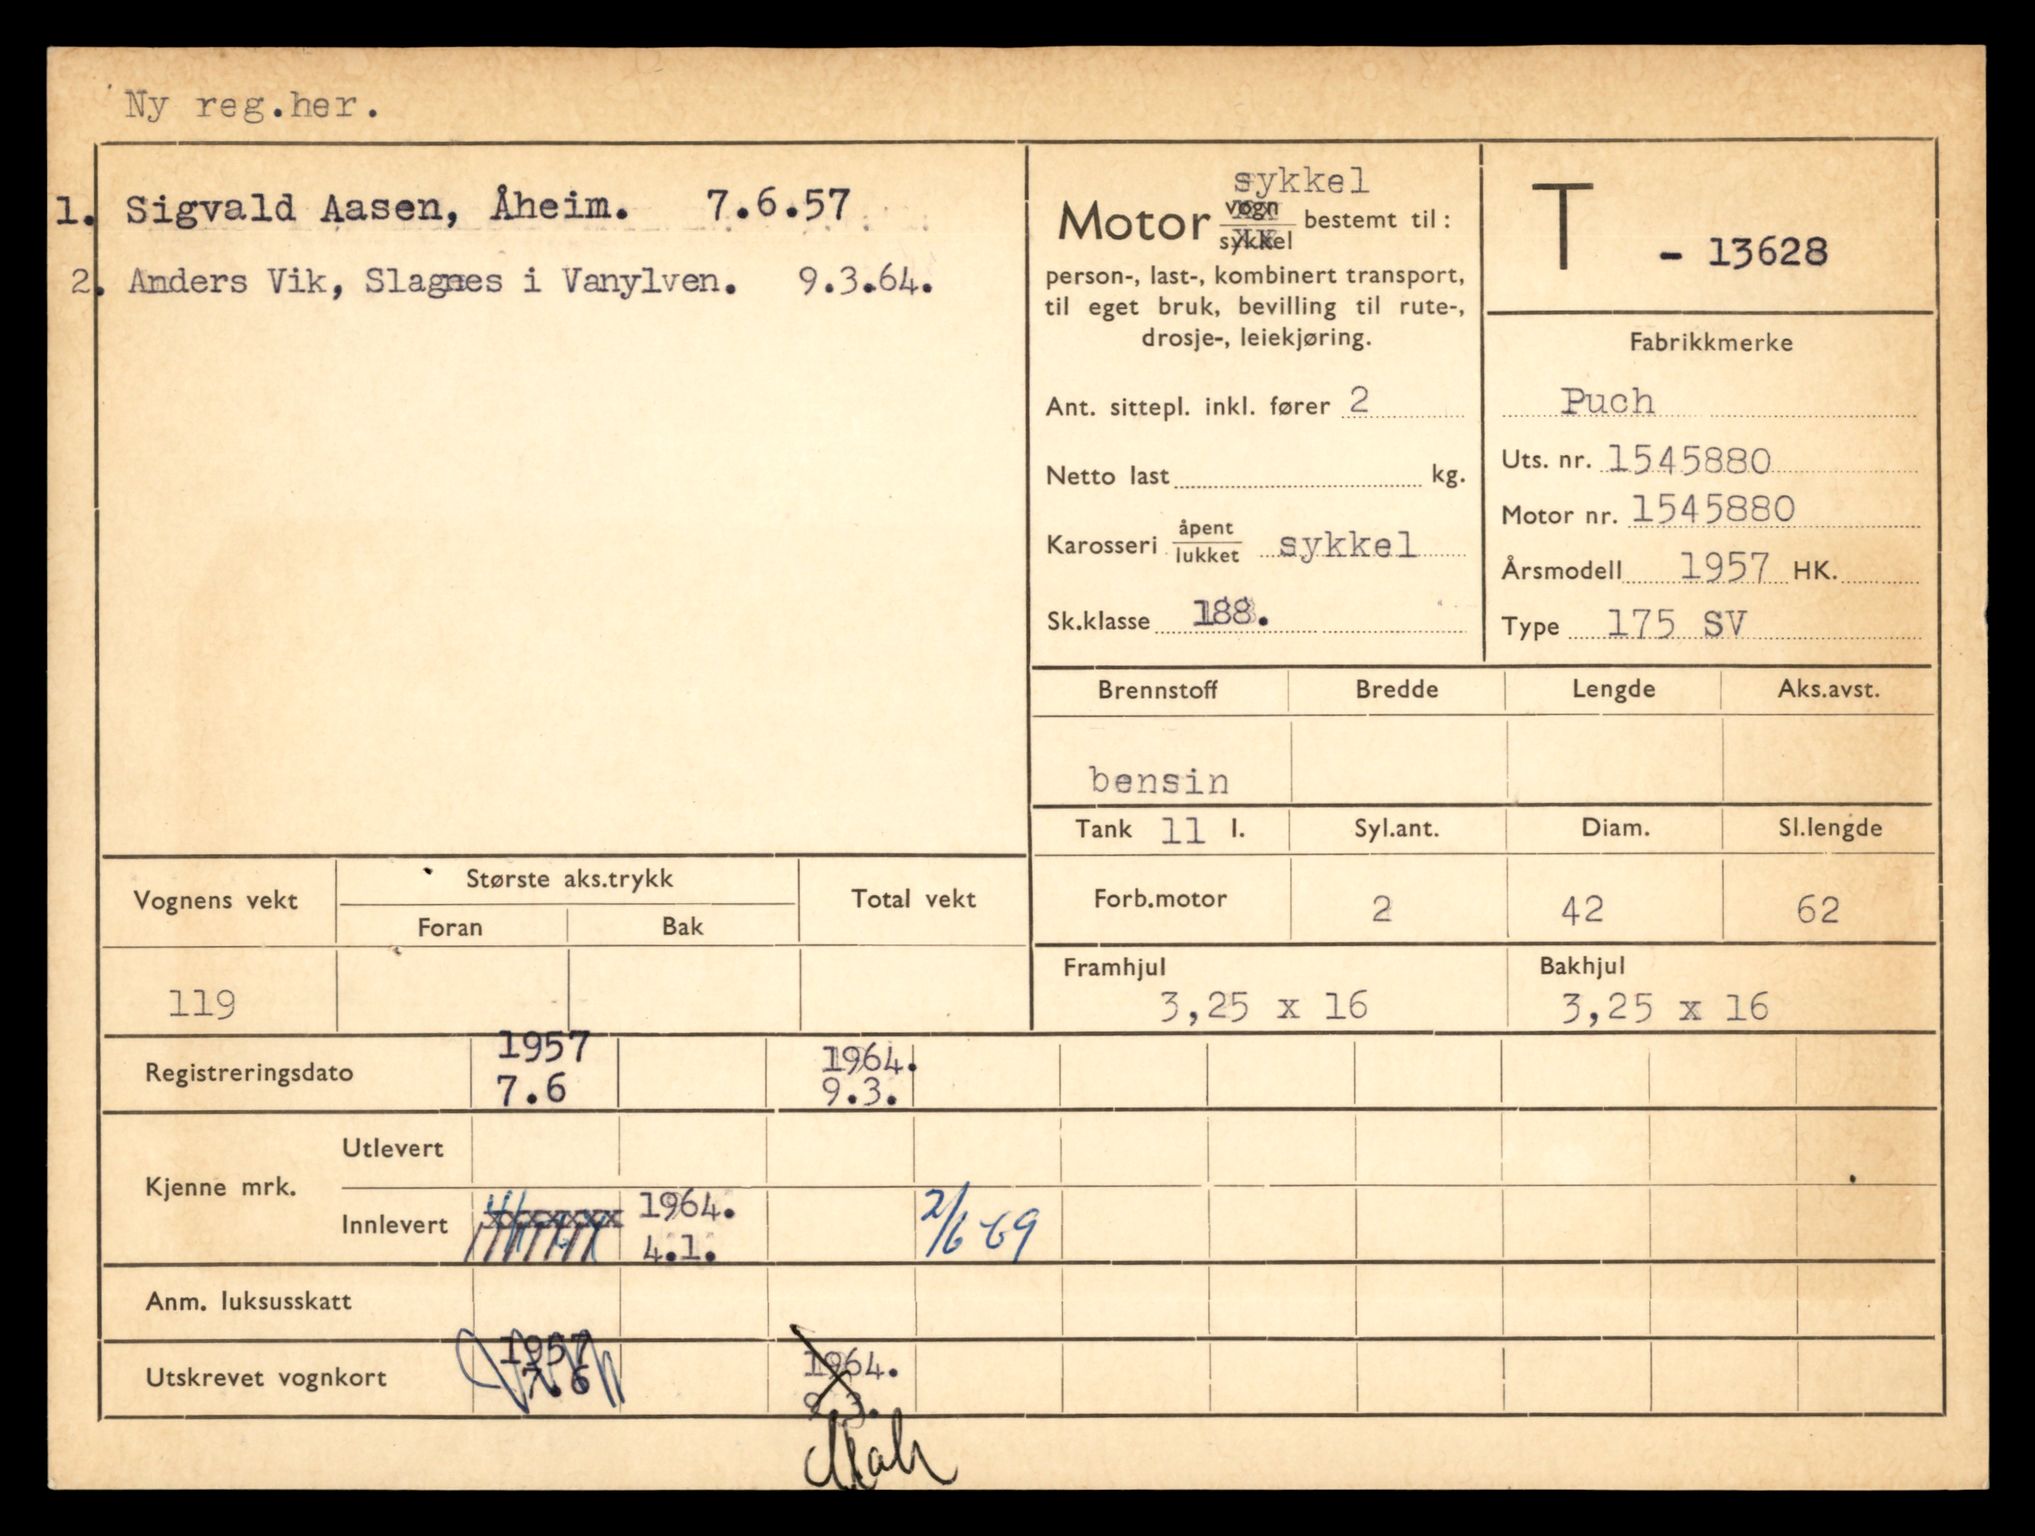 Ny reg.her.
1. Sigvald Aasen, Åheim. 7.6.57
2. Anders Vik, Slagnes i Vanylven. 9.3.64.
sykkel
Motor vogn sykkel bestemt til:
person-, last-, kombinert transport,
til eget bruk, bevilling til rute-,
drosje-, leiekjøring.
Ant. sittepl. inkl. fører 2
Netto last kg.
Karosseri åpent lukket sykkel
Sk.klasse 188.
T - 13628
Fabrikkmerke
Puch
Uts. nr. 1545880
Motor nr. 1545880
Årsmodell 1957 HK.
Type 175 SV
Brennstoff Bredde Lengde Aks.avst.
bensin
Tank 11 l. Syl.ant. Diam. Sl.lengde
Forb.motor 2 42 62
Framhjul Bakhjul
3,25 x 16 3,25 x 16
Vognens vekt Største aks.trykk Total vekt
Foran Bak
119
Registreringsdato 1957 1964.
7.6 9.3.
Kjenne mrk. Utlevert
Innlevert 1964. 2/6-69
4.1.
Anm. luksusskatt
Utskrevet vognkort 1957 1964.
7.6 9.3.